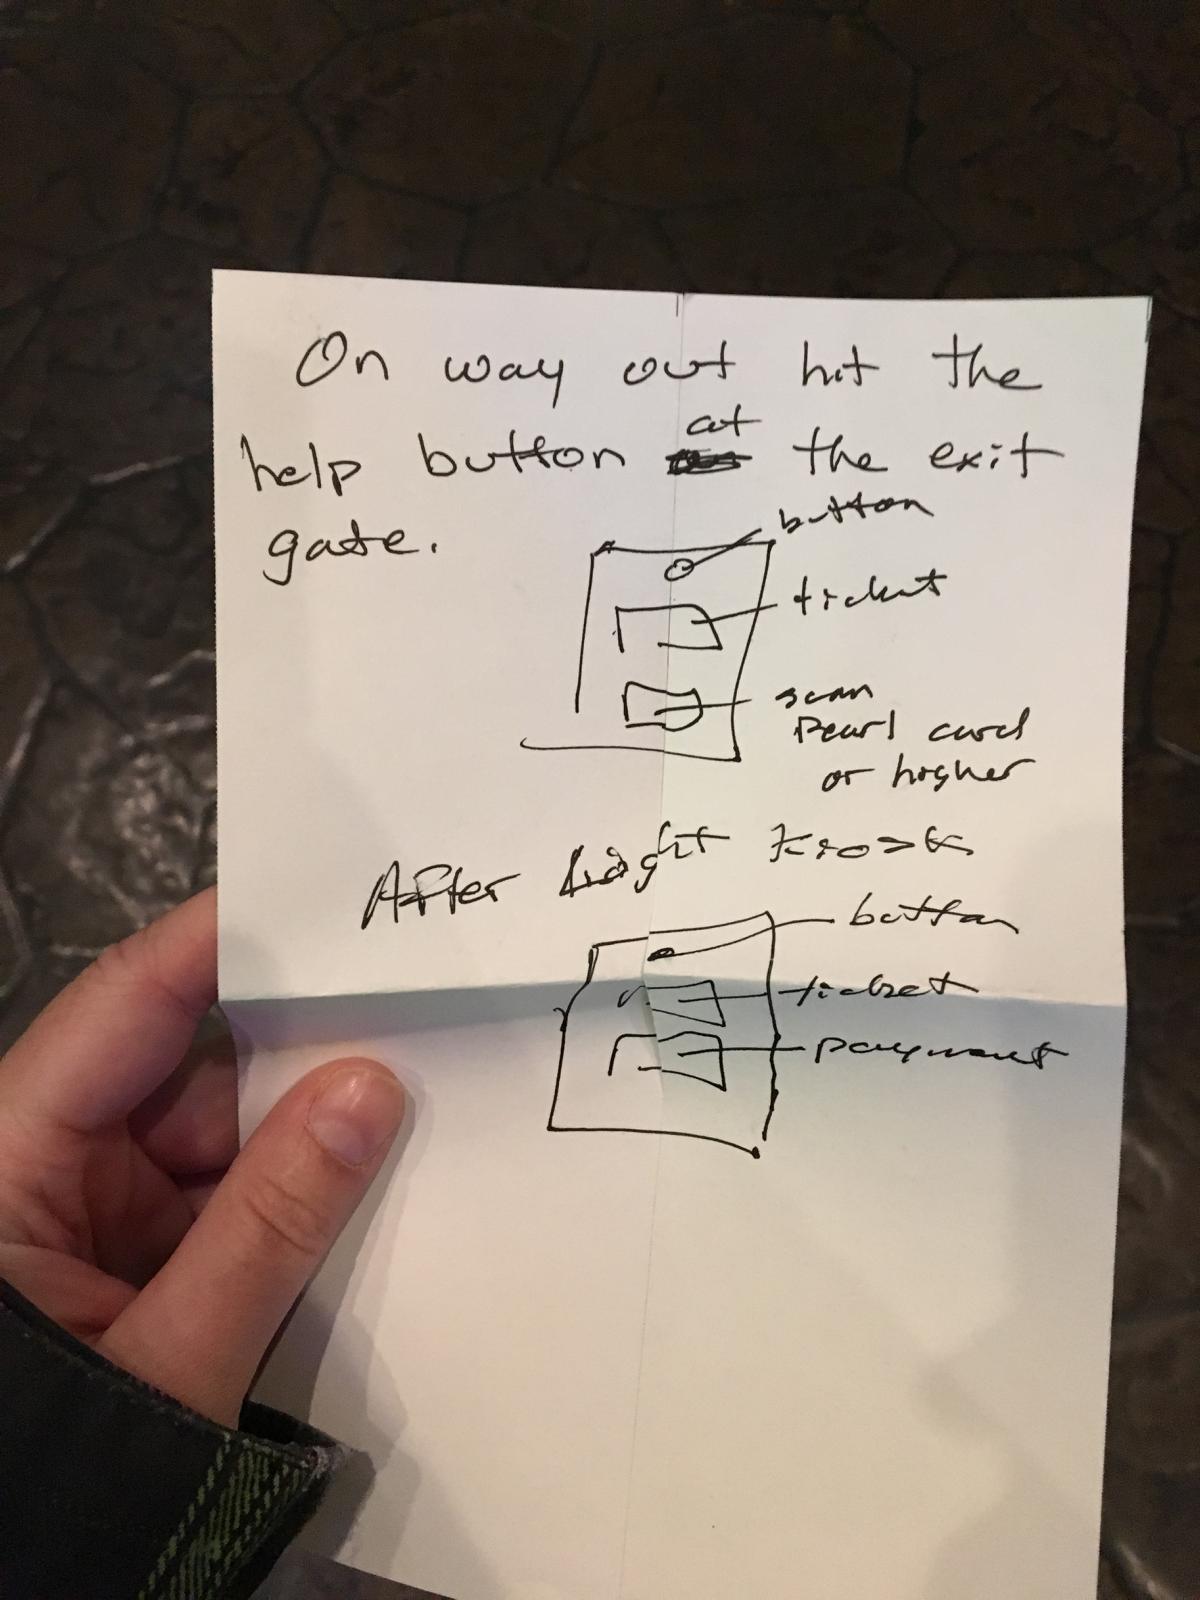 On way out hit the
help button at the exit
gate.
button
ticket
scan
Pearl card
or higher
After hight Kiosk
button
ticket
payment